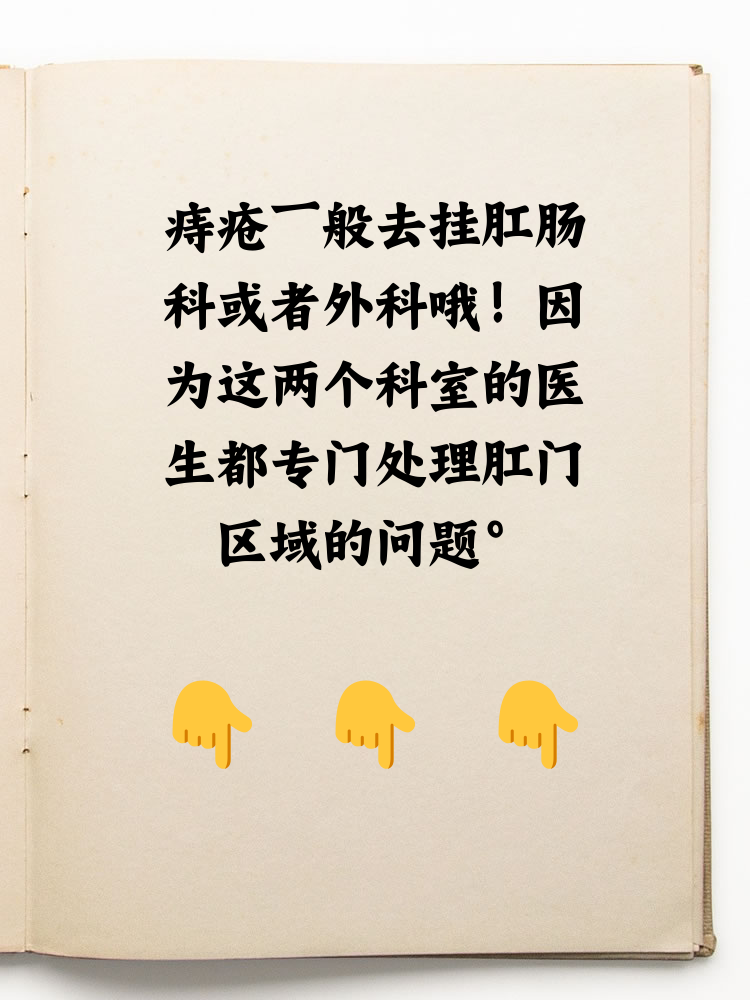 痔疮一般去挂肛肠
科或者外科哦！因
为这两个科室的医
生都专门处理肛门
区域的问题。